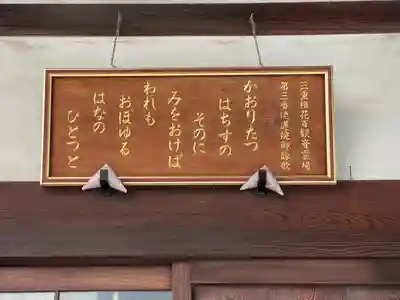 三重梅花寺観音霊場
第三番徳蓮院御詠歌
かおりたつ
はちすの
そのに
みをおけば
われも
おぼゆる
はなの
ひとつと